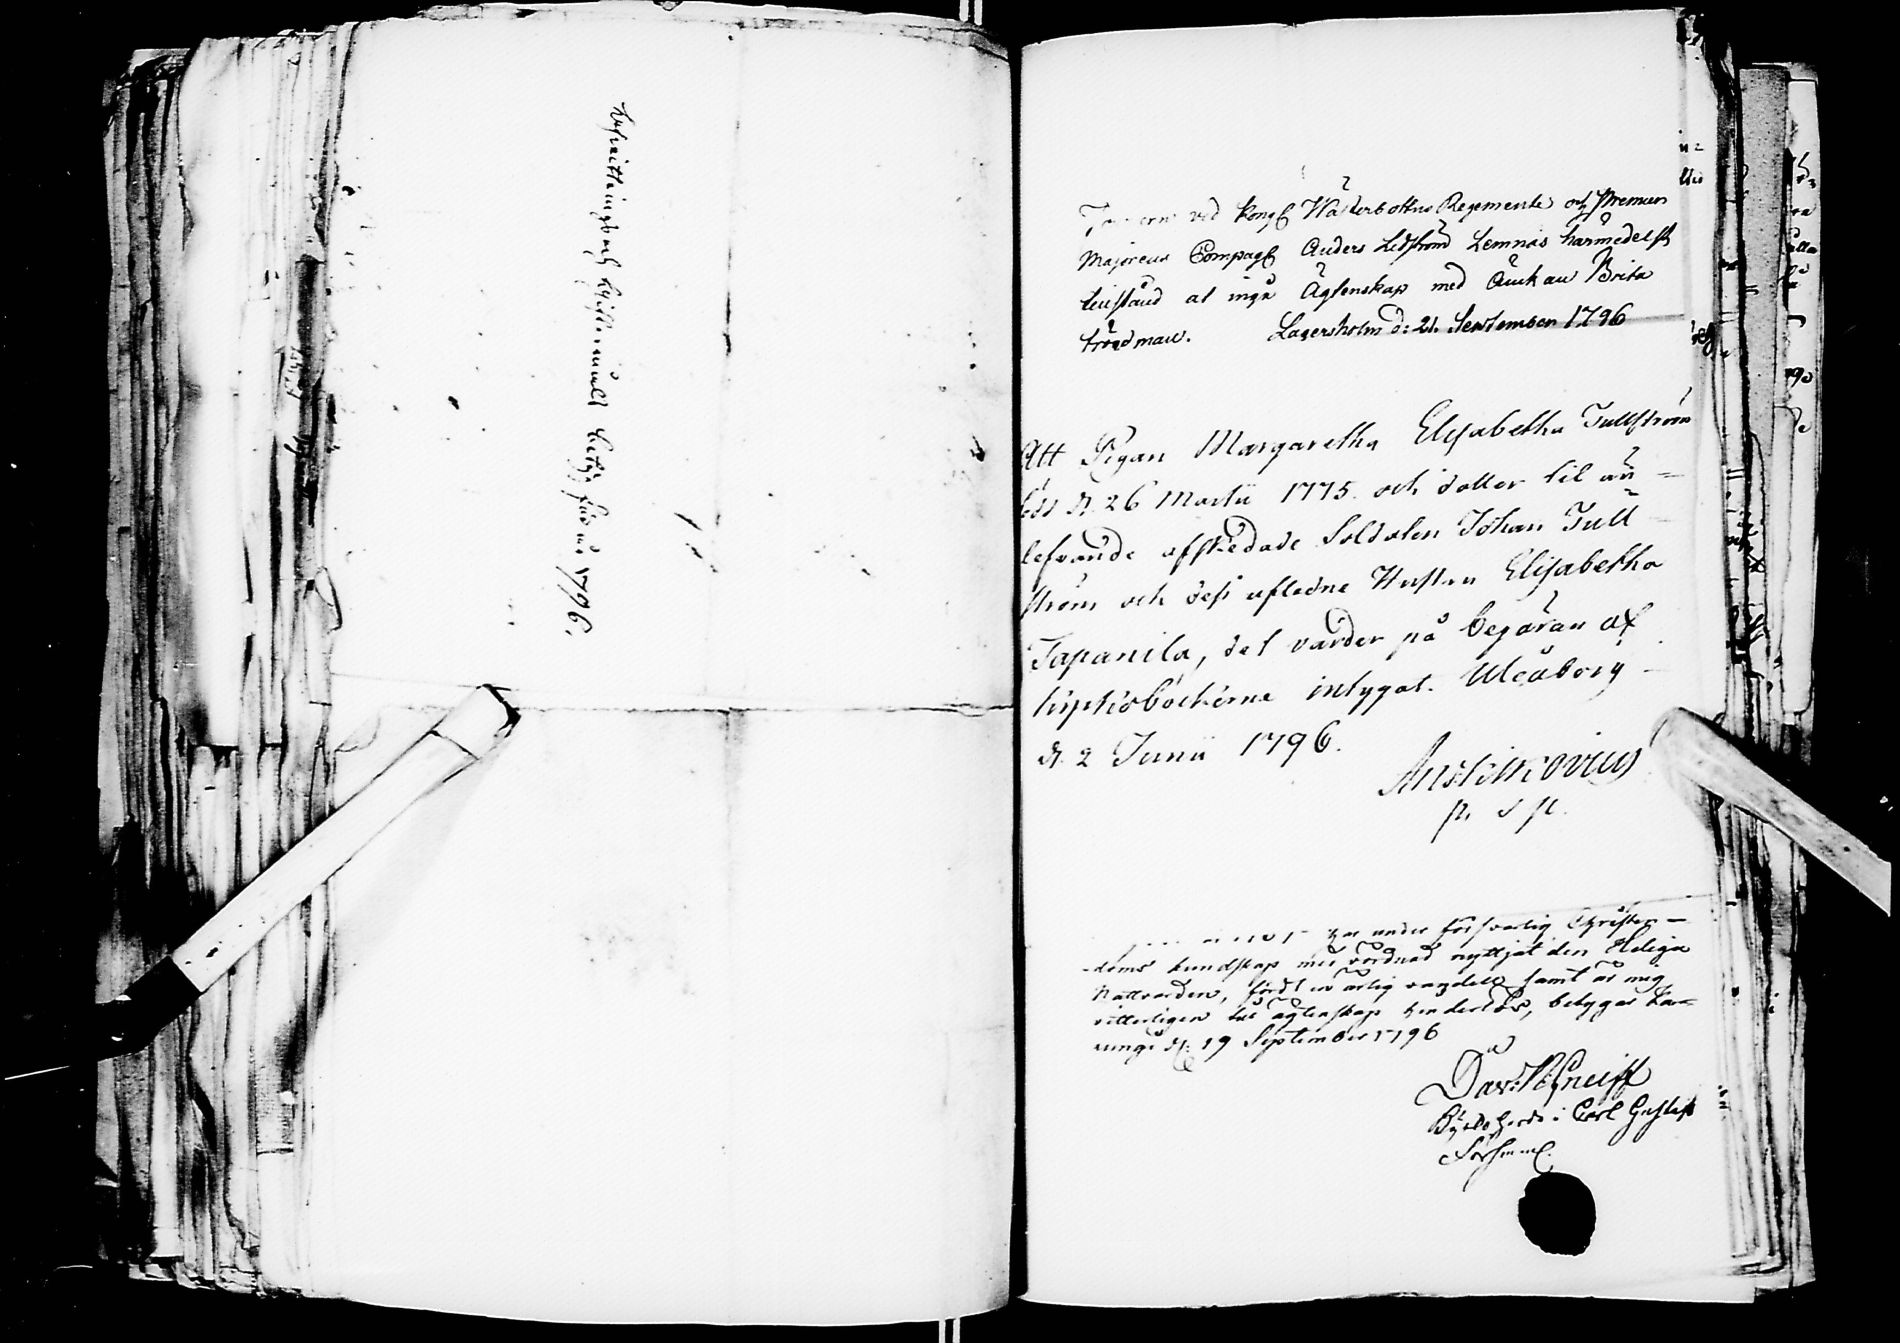 Lysnings och Lysthinnals betyg för år 1796.
wid Kongl Wästerbottns Regemente och Premier
Majorens Compagl Anders Lidström Lemnas härmedelst
tilstånd at ingå Ägtenskap med Änckan Brita
Brodman. Lagersholm d: 21. September 1796
Att Pigan Margaretha Elisabetha Tullström
född d. 26 Martii 1775. och dotter til än=
lefvande afskedade Soldaten Johan Tull=
ström och dess afledne Hustru Elisabetha
Tapanila, det varder på begäran af
kyrkioböckerne intygat. Uleåborg
d. 2 Junii 1796.
p. s pl.
har under försvarlig Christen-
doms kundskap med vördnad nyttjat den Heliga
Nattvarden, fördt en ärlig vandel samt är mig
vitterligen til ägtenskap hinderlös, betygar Kar=
ungi d: 19 September 1796
Kyrko herde i Carl Gustafs
Församl.